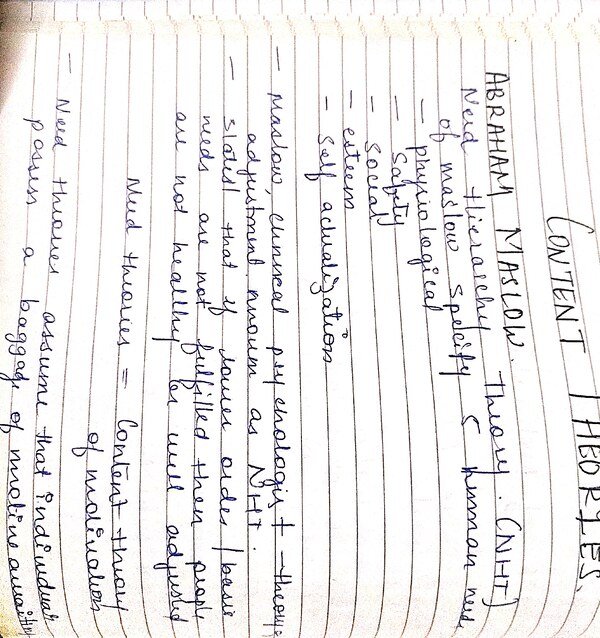 CONTENT THEORIES.
ABRAHAM MASLOW.
Need Hierarchy Theory. (NHT)
of maslow specify 5 human needs
- physiological
- Safety
- Social
- esteem
- Self actualization
- Maslow, clinical psychologist - theory
adjustment known as NHT.
- States that if lower order / basic
needs are not fulfilled then people
are not healthy or well adjusted
Need theories = Content theory
of motivation
- Need theories assume that individuals
possess a baggage of motive